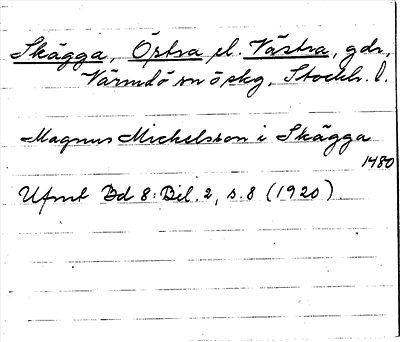 Skägga, Östra el. Västra, gdr,
Värmdö sn o skg, Stockh. l.
Magnus Mickelsson i Skägga
1480
Ufmt Bd 8: Bil. 2, s. 8 (1920)